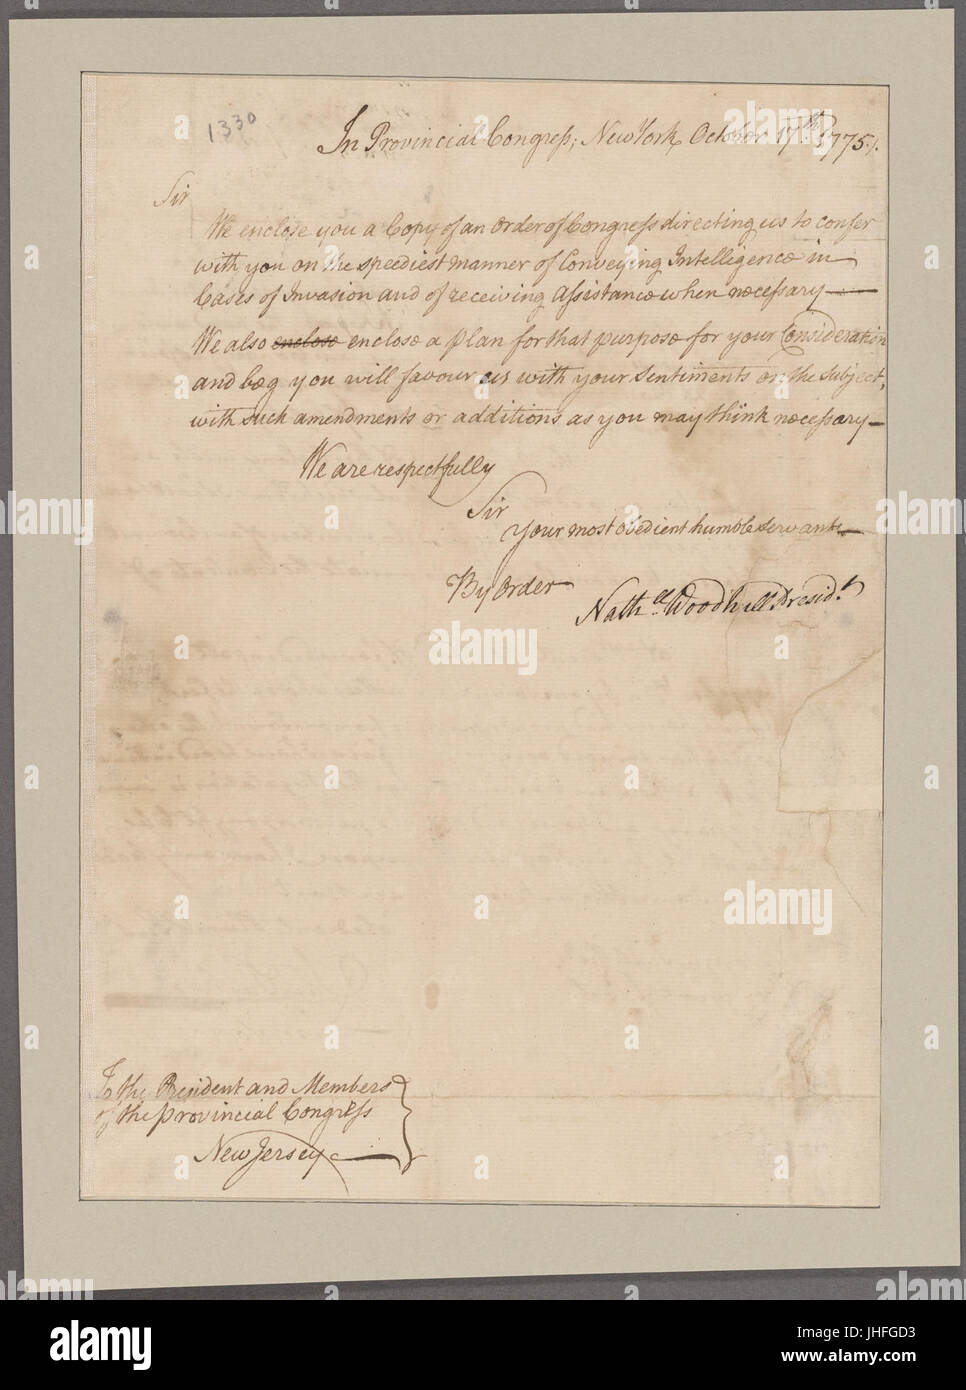 1330
In Provincial Congress; New York October 17th. 1775./.
Sir
We enclose you a Copy of an order of Congress directing us to confer
with you on the speediest manner of Conveying Intelligence in
Cases of Invasion and of receiving Assistance when necessary
We also enclose enclose a plan for that purpose for your Consideration
and beg you will favour us with your sentiments on the subject,
with such amendments or additions as you may think necessary
We are respectfully
Sir
Your most obedient humble servants
By order
Nathell. Woodhull Presidt.
To the President and Members
of the Provincial Congress
New Jersey
alamy stock photo
JHFGD3
www.alamy.com